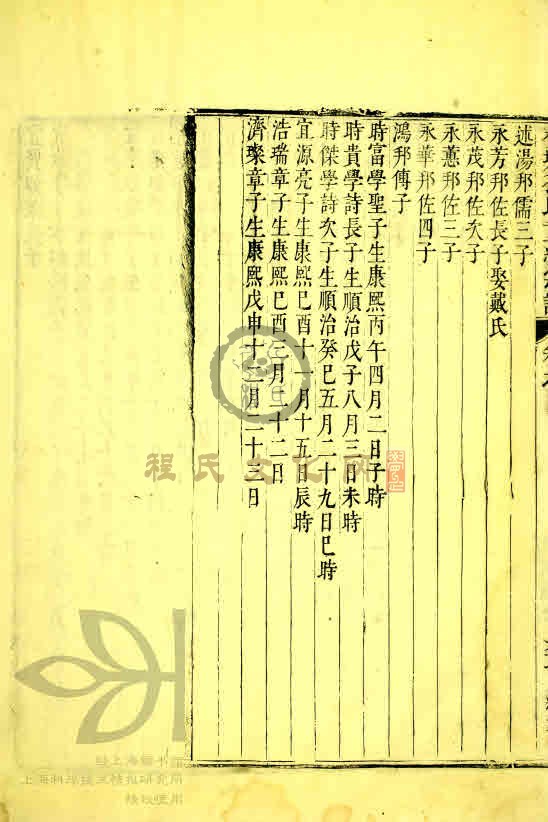 述湯邦儒三子
永芳邦佐長子娶戴氏
永茂邦佐次子
永蕙邦佐三子
永華邦佐四子
鴻邦傳子
時富學聖子生康熙丙午四月二日子時
時貴學詩長子生順治戊子八月三日未時
時傑學詩次子生順治癸巳五月二十九日巳時
宜源亮子生康熙己酉十一月十五日辰時
浩瑞章子生康熙己酉三月二十二日
濟璨章子生康熙戊申十二月二十三日
程氏文化网
上海图书馆
上海科学技术情报研究所